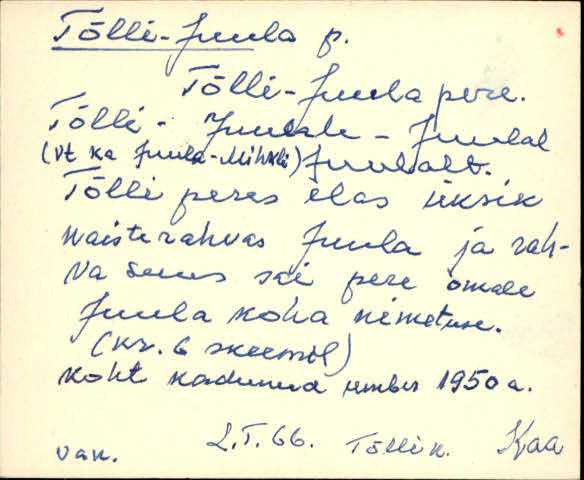 Tõlli-Juula p.
Tõlli-Juula pere.
Tõlli - Juulale - Juulal
(vt ka Juula-Mihkli) Juulalt.
Tõlli peres elas üksik
naisterahvas Juula ja rah-
va suus sai pere omale
Juula koha nimetuse.
(nr. 6 skeemil)
koht kadunud umbes 1950 a.
van. 2.I.66. Tõllik. Kaa